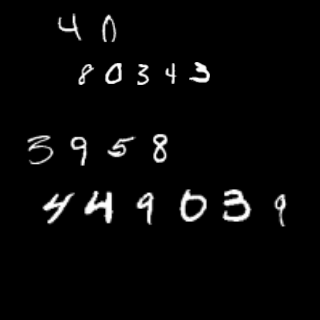 40
80343
3958
449039